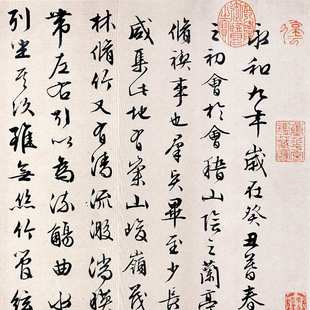 永和九年歲在癸丑暮春
之初會於會稽山陰之蘭亭
脩禊事也羣賢畢至少長
咸集此地有崇山峻嶺茂
林脩竹又有清流激湍暎
帶左右引以為流觴曲水
列坐其次雖無絲竹管弦